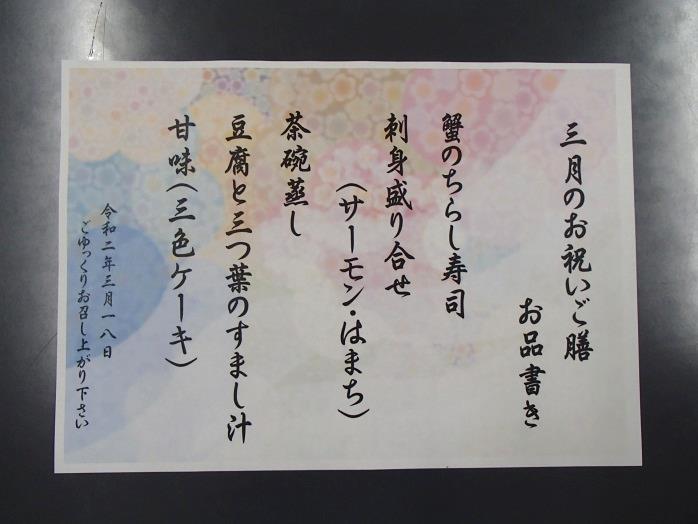 三月のお祝いご膳
お品書き
蟹のちらし寿司
刺身盛り合せ
(サーモン・はまち)
茶碗蒸し
豆腐と三つ葉のすまし汁
甘味(三色ケーキ)
令和二年三月一八日
ごゆっくりお召し上がり下さい